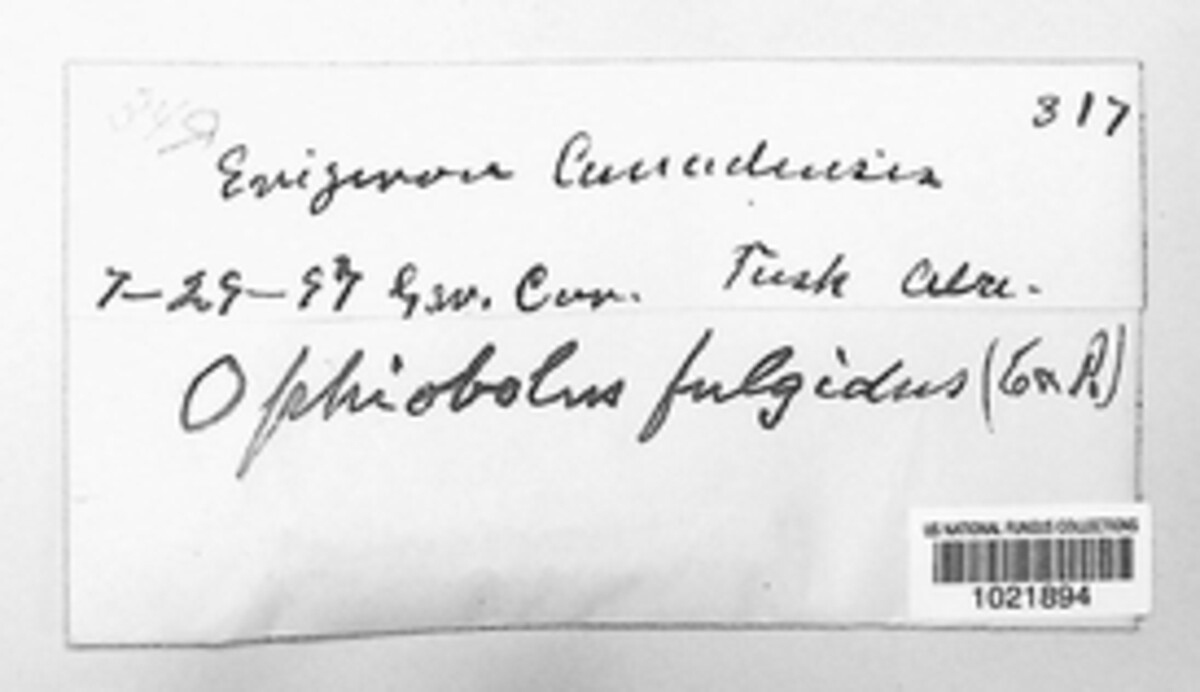 317
Erigeron Canadensis
7-29-97 Geo. Car. Tusk Ala.
Ophiobolus fulgidus (C & P.)
US NATIONAL FUNGUS COLLECTIONS
1021894